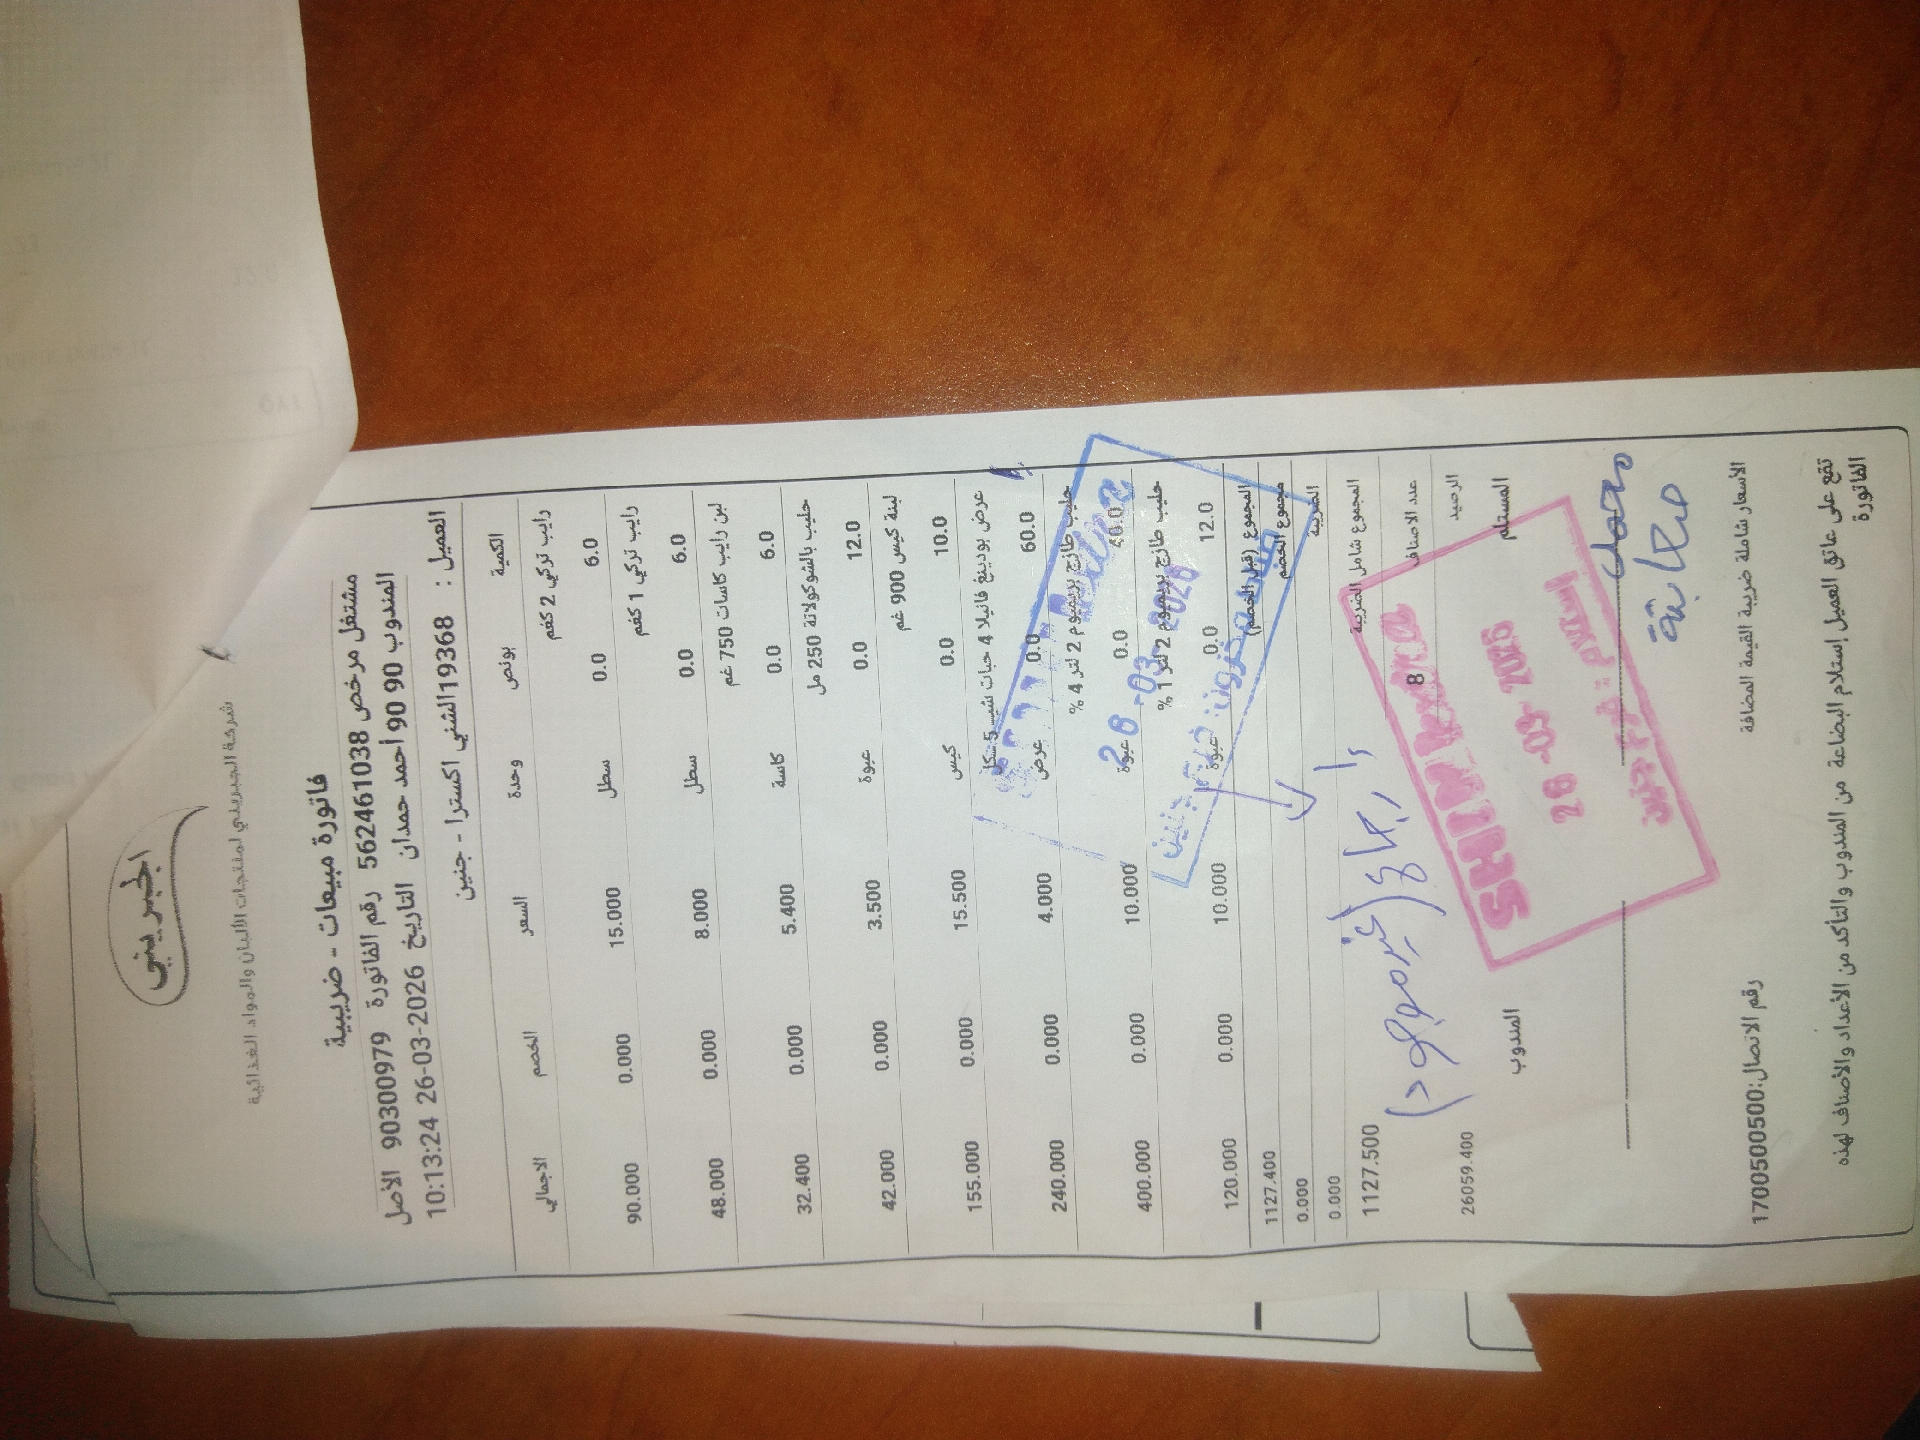 الجبريني
شركة الجبريني لمنتجات الألبان والمواد الغذائية
فاتورة مبيعات - ضريبية
مشتغل مرخص 562461038 رقم الفاتورة 90300979 الأصل
المندوب 90 90 أحمد حمدان التاريخ 2026-03-26 10:13:24
العميل : 19368الشني اكسترا - جنين
الكمية بونص وحدة السعر الخصم الاجمالي
رايب تركي 2 كغم
6.0 0.0 سطل 15.000 0.000 90.000
رايب تركي 1 كغم
6.0 0.0 سطل 8.000 0.000 48.000
لبن رايب كاسات 750 غم
6.0 0.0 كاسة 5.400 0.000 32.400
حليب بالشوكولاتة 250 مل
12.0 0.0 عبوة 3.500 0.000 42.000
لبنة كيس 900 غم
10.0 0.0 كيس 15.500 0.000 155.000
عرض بودينغ فانيلا 4 حبات شيب 5 شكل
60.0 0.0 عرض 4.000 0.000 240.000
حليب طازج بريميوم 2 لتر 4 %
40.0 0.0 عبوة 10.000 0.000 400.000
حليب طازج بريميوم 2 لتر 1 %
12.0 0.0 عبوة 10.000 0.000 120.000
المجموع (قبل الخصم) 1127.400
مجموع الخصم 0.000
الضريبة 0.000
المجموع شامل الضريبة 1127.500
عدد الاصناف 8
الرصيد 26059.400
26 -03- 2026
جنين
ارجاع (غير موجود)
SHINI Extra
26 -03- 2026
استلام
المستلم المندوب
محمد
صحابة
الأسعار شاملة ضريبة القيمة المضافة رقم الاتصال:1700500500
تقع على عاتق العميل إستلام البضاعة من المندوب والتأكد من الأعداد والأصناف لهذه
الفاتورة